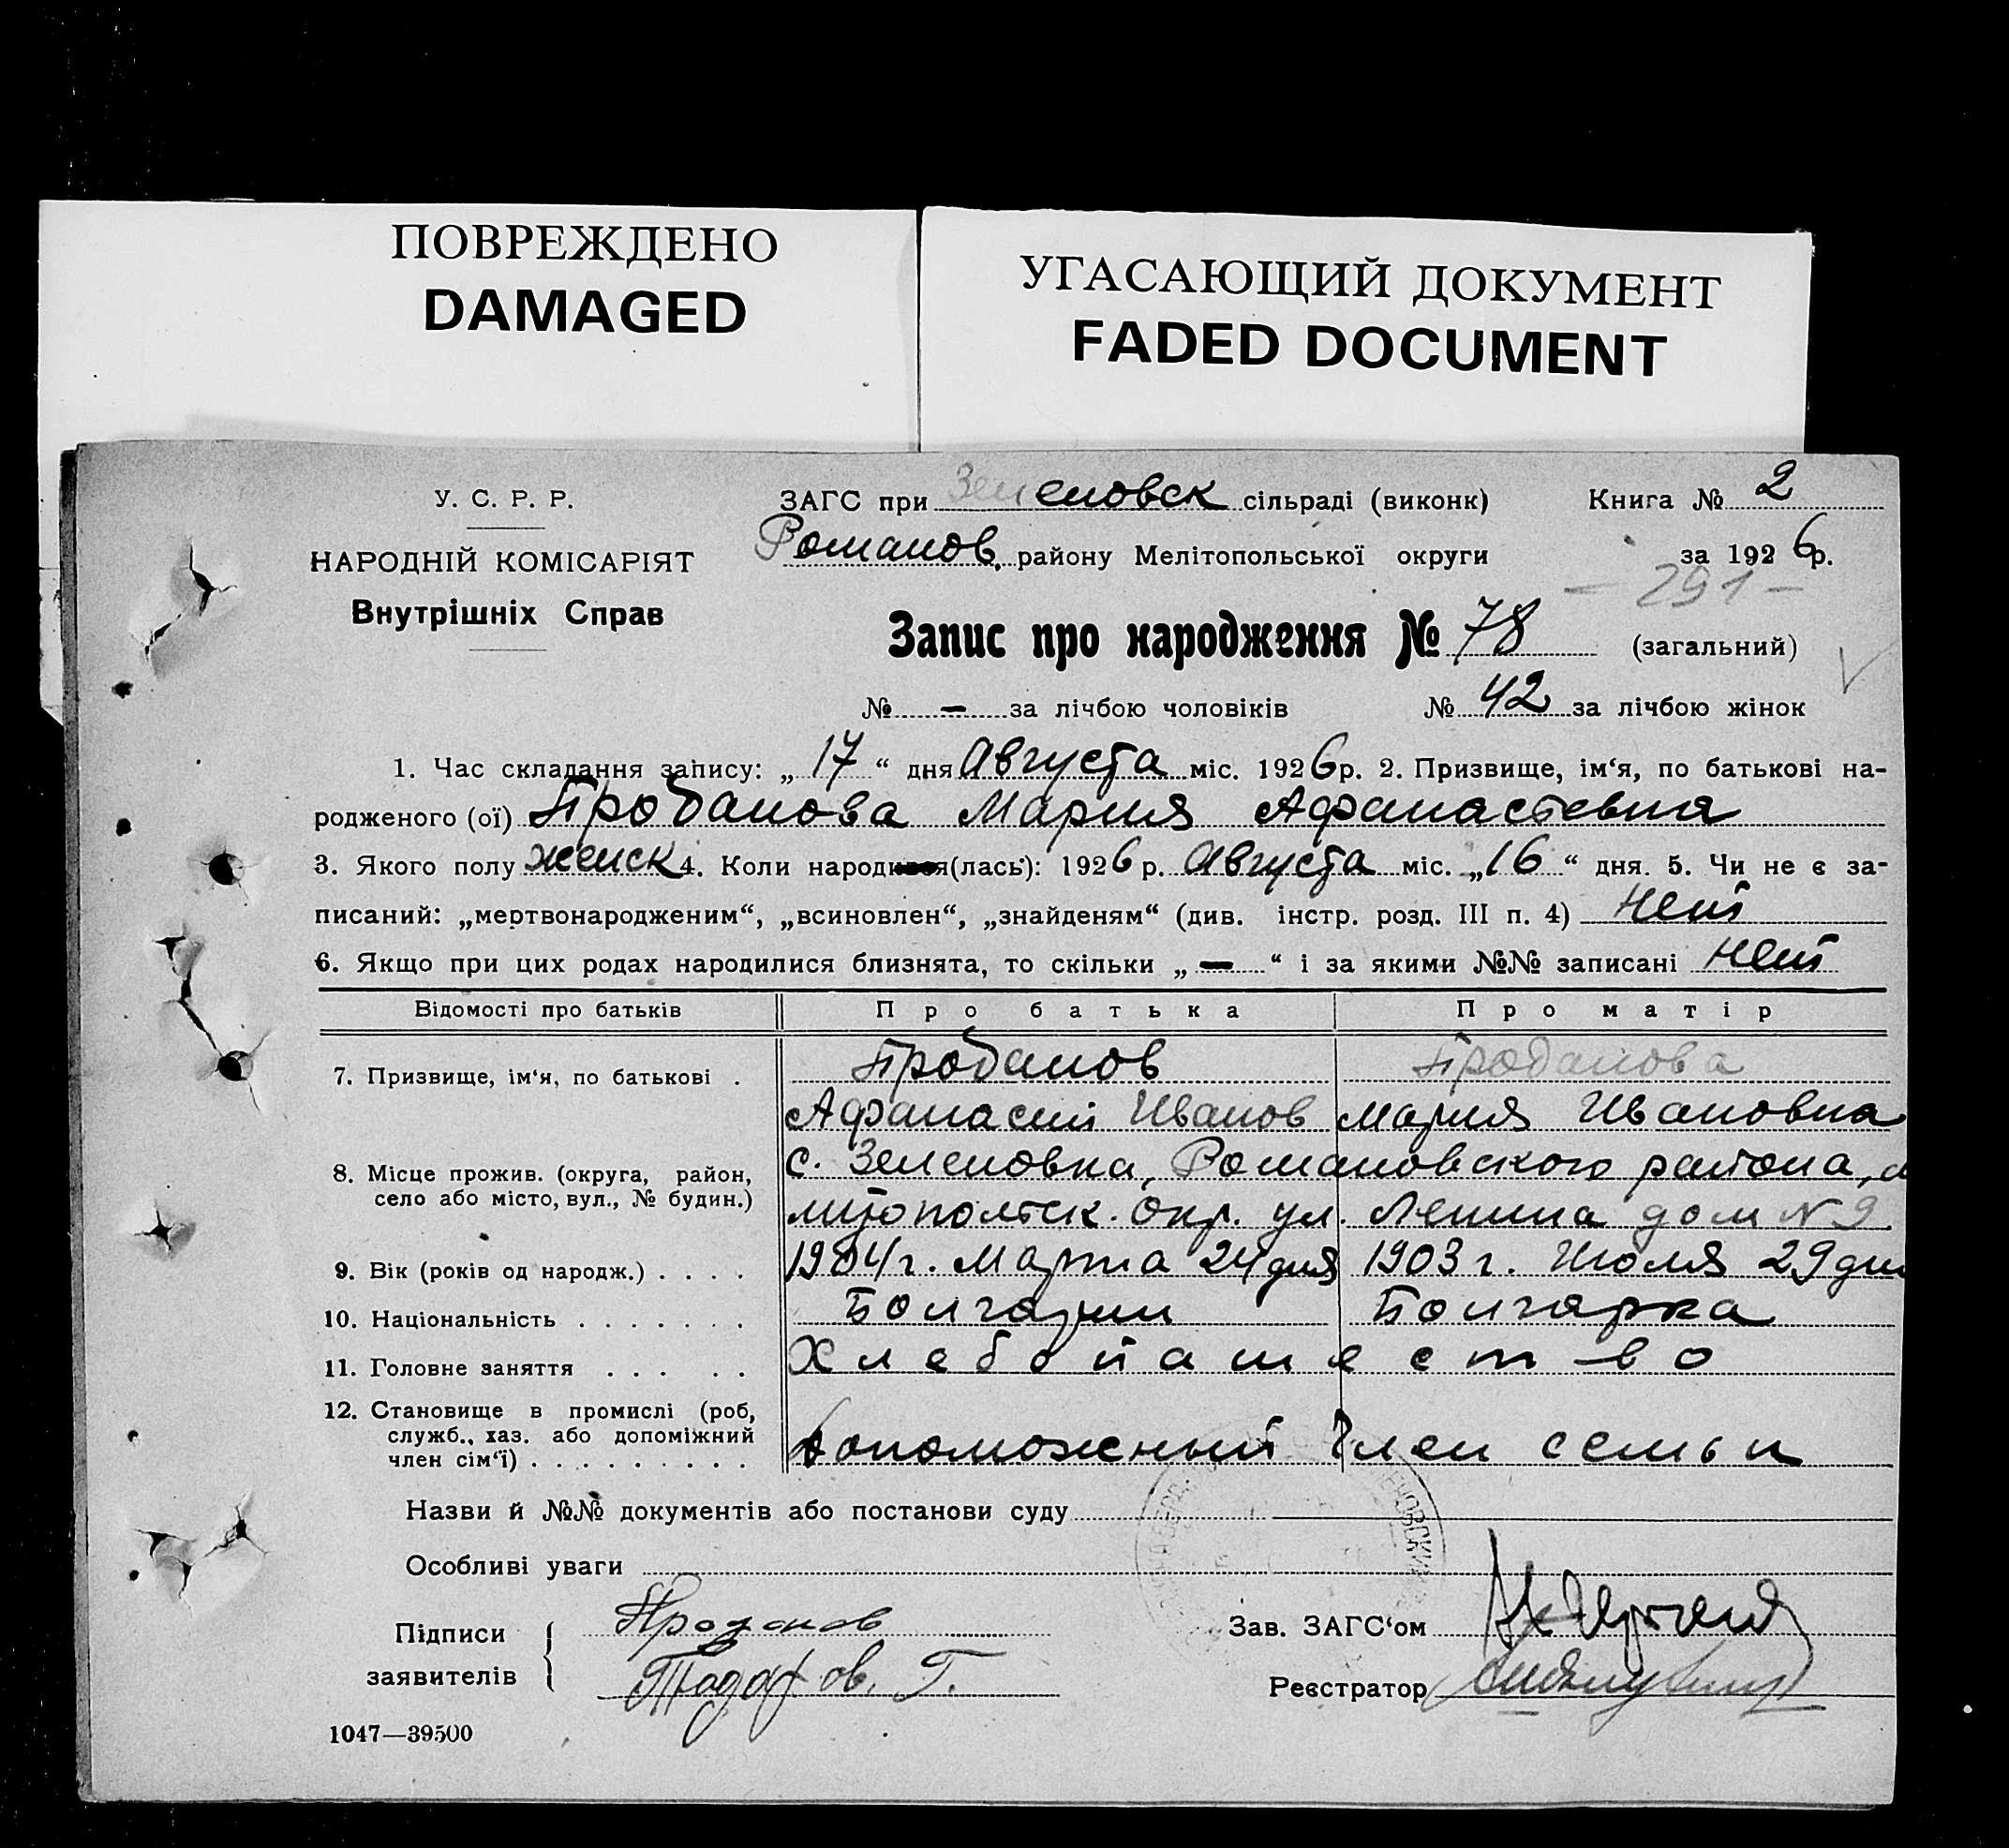 ПОВРЕЖДЕНО
DAMAGED
УГАСАЮЩИЙ ДОКУМЕНТ
FADED DOCUMENT
У. С. Р. Р.
НАРОДНІЙ КОМІСАРІЯТ
Внутрішніх Справ
ЗАГС при Зеленовск сільраді (виконк) Книга № 2
Романов. району Мелітопольської округи за 1926р.
— 291 —
Запис про народження № 78 (загальний)
№ — за лічбою чоловіків № 42 за лічбою жінок
1. Час складання запису: „ 17 “ дня Августа міс. 1926р. 2. Призвище, ім‘я, по батькові на-
родженого (ої) Проданова Мария Афанасьевна
3. Якого полу женск 4. Коли народився(лась): 1926 р. Августа міс. „16“ дня. 5. Чи не є за-
писаний: „мертвонародженим“, „всиновлен“, „знайденям“ (див. інстр. розд. III п. 4) Нет
6. Якщо при цих родах народилися близнята, то скільки „ — “ і за якими №№ записані Нет
Відомості про батьків Про батька Про матір
7. Призвище, ім‘я, по батькові . Проданов Проданова
Афанасий Иванов Мария Ивановна
8. Місце прожив. (округа, район, село або місто, вул., № будин.) с. Зеленовка, Романовского района, м
литопольск. окр. ул. Ленина дом № 9
9. Вік (років од народж.) . . . . 1904 г. Марта 24 дня 1903 г. Июля 29 дня
10. Національність . . . . . . . Болгарин Болгарка
11. Головне заняття . . . . . Хлебопашество
12. Становище в промислі (роб,
служб., хаз. або допоміжний
член сім‘ї) . . . . . . . . . Допоможеный член семьи
Назви й №№ документів або постанови суду
Особливі уваги
Підписи
заявителів
Проданов
Тодоров. Г.
Зав. ЗАГС‘ом
Реєстратор
1047—39500